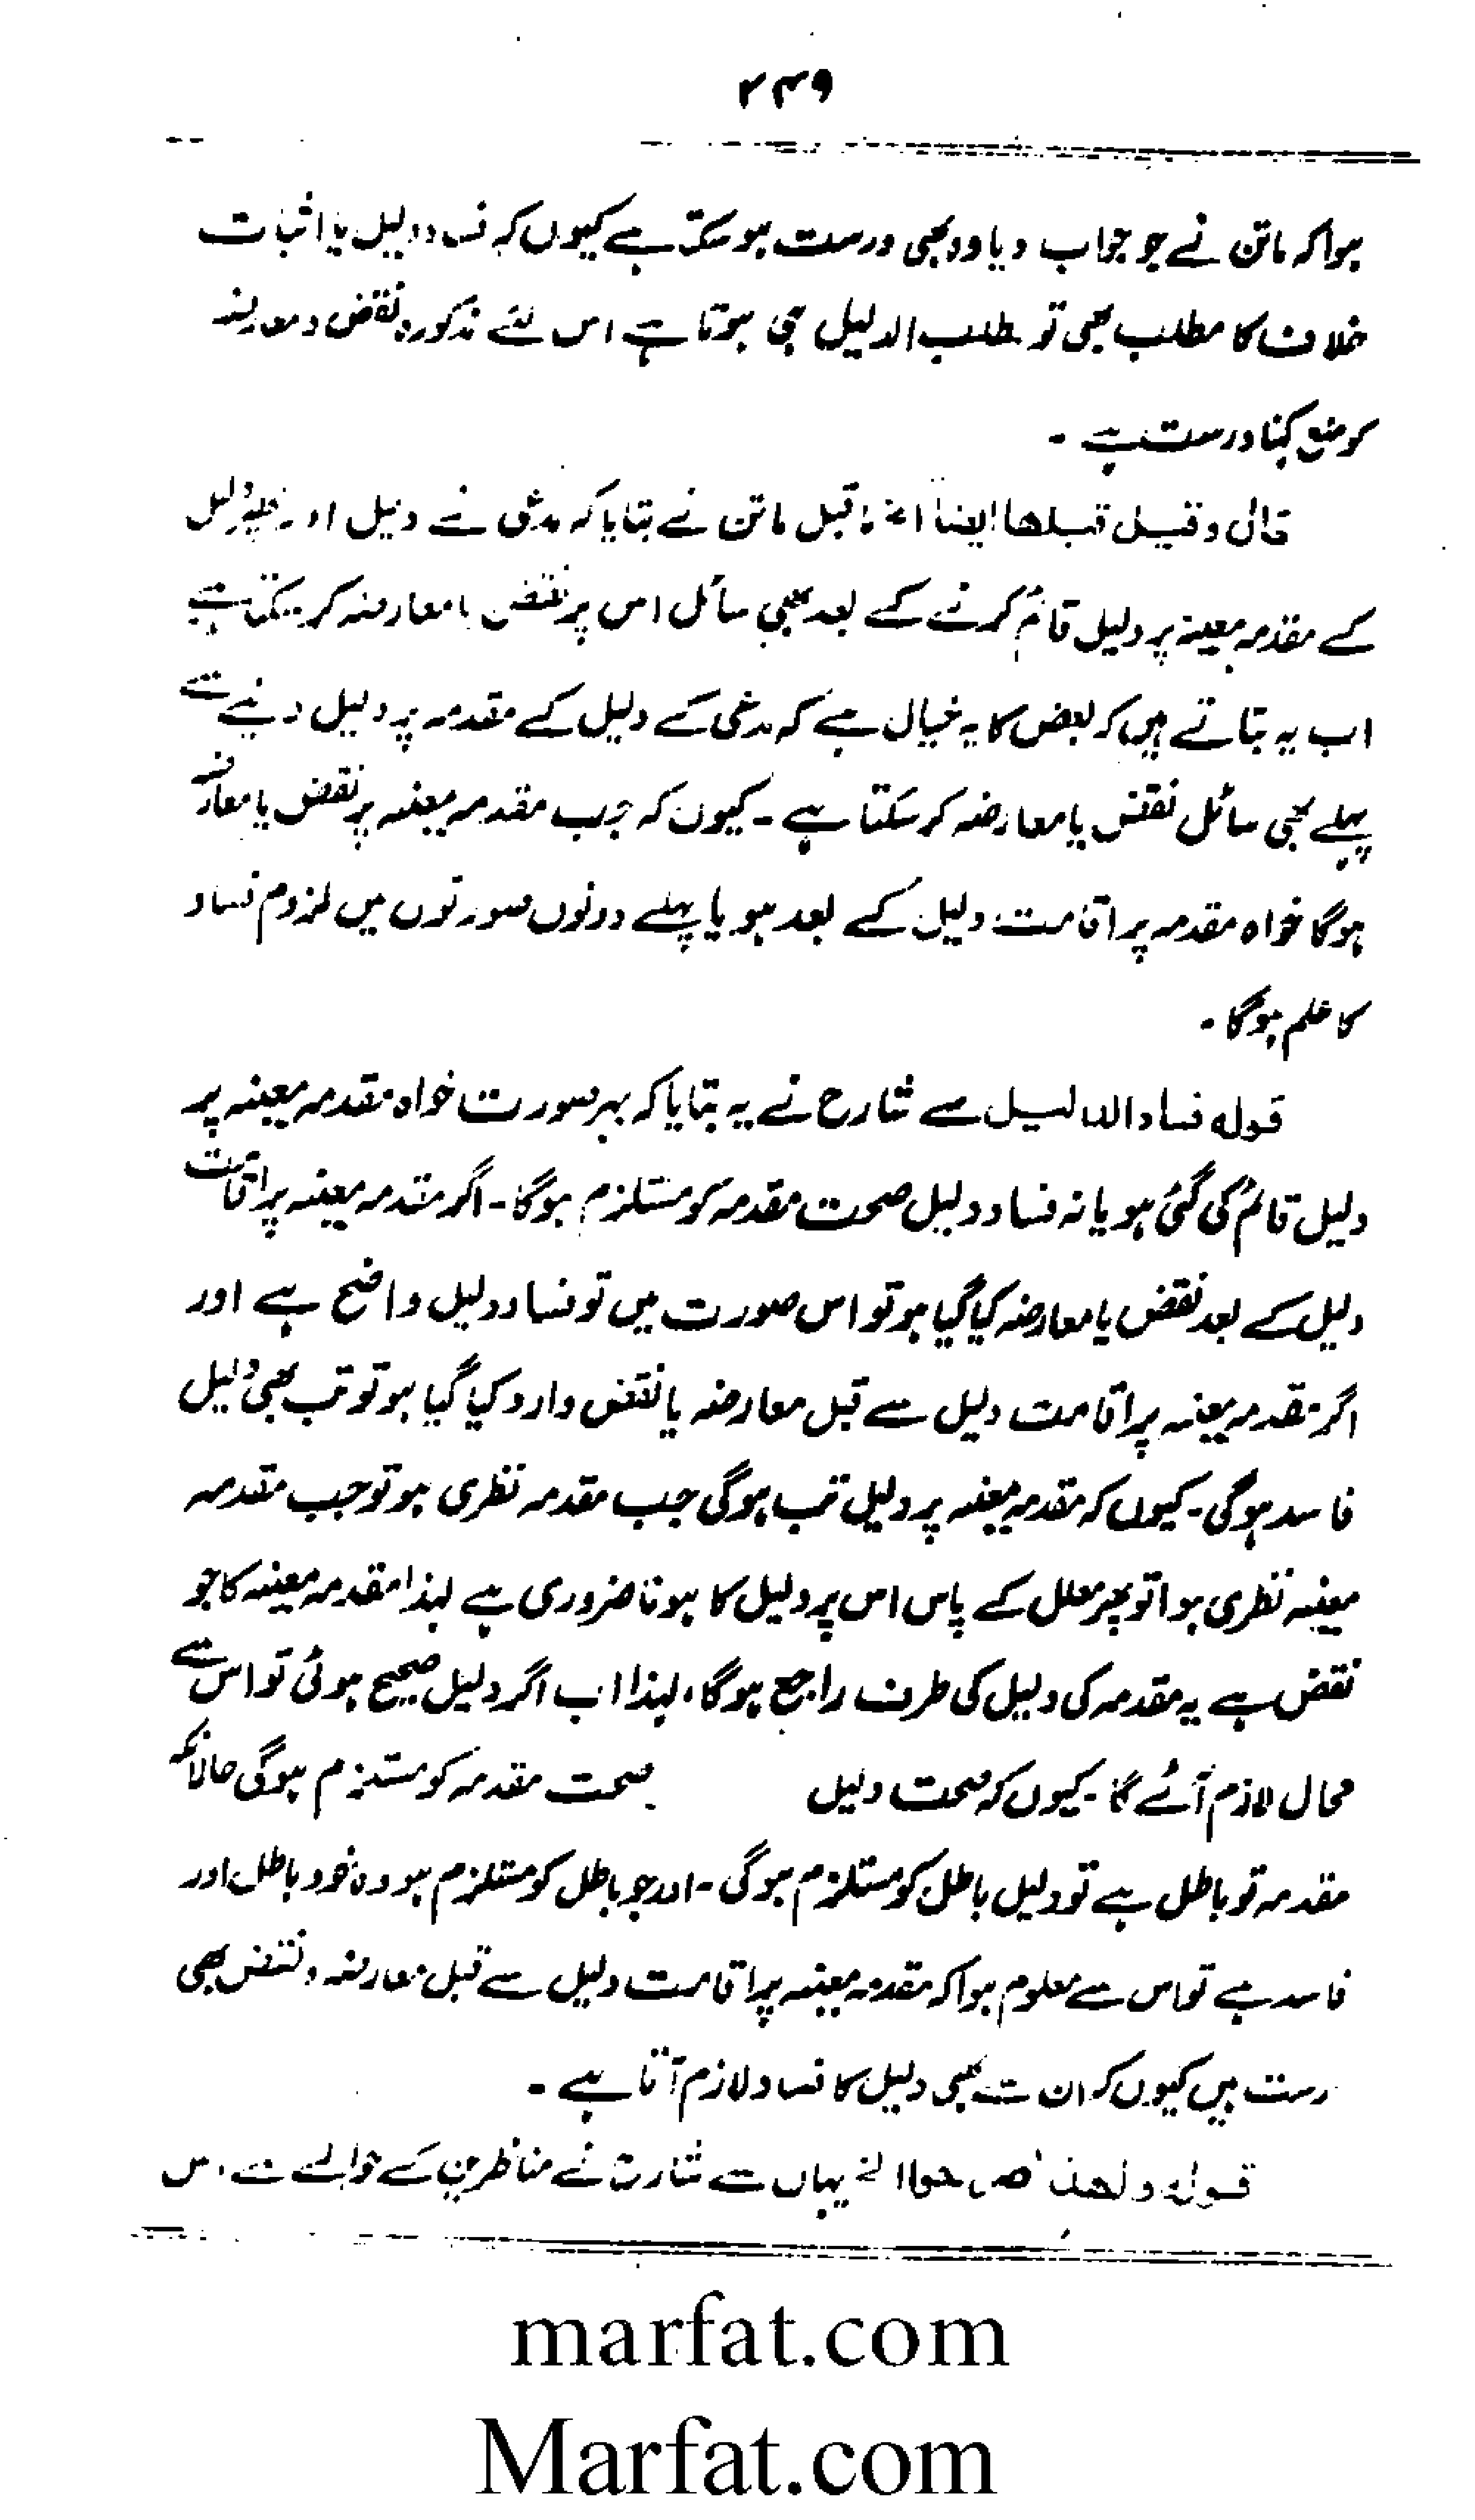 ۲۴۹
ہوا کہ ماتن نے جو جواب دیا وہ بھی درست ہو سکتا ہے کیوں کہ فساد دلیل یا اثبات
خلاف کا مطلب بھی تو طلب الدلیل ہی ہوتا ہے اس لئے مذکورہ نقض و معارضہ
کو منع کہنا درست ہے ۔
قال وقیل قبلھا ایضاً الخ ماقبل ماتن نے بتایا کہ مدعی نے دلیل اور
کے مقدمہ معینہ پر دلیل قائم کرنے کے بعد بھی سائل اس پر نقض یا معارضہ کر سکتا ہے
اب یہ بتاتے ہیں کہ بعض کا یہ خیال ہے کہ مدعی کے دلیل کے مقدمہ پر دلیل دینے سے
پہلے بھی سائل نقض یا معارضہ کر سکتا ہے ۔ کیوں کہ جب مقدمہ معینہ پر نقض یا معارضہ
ہوگا خواہ مقدمہ پر اقامت دلیل کے بعد ہو یا پہلے دونوں صورتوں میں لزوم فساد
کا علم ہوگا ۔
قولہ فساد الدلیل سے شارح نے یہ بتایا کہ بہر صورت خواہ مقدمہ معینہ پر
دلیل قائم کی گئی ہو یا نہ فساد دلیل صحت مقدمہ کو مستلزم ہوگا ۔ اگر مقدمہ معینہ پر اقامت
دلیل کے بعد نقض یا معارضہ کیا گیا ہو تو اس صورت میں تو فساد دلیل واضح ہے اور
اگر مقدمہ معینہ پر اقامت دلیل سے قبل معارضہ یا نقض وارد کیا گیا ہو تو تب بھی دلیل
فاسد ہوگی ۔ کیوں کہ مقدمہ معینہ پر دلیل تب ہوگی جب مقدمہ نظری ہو تو جب مقدمہ
معینہ نظری ہوا تو پھر معلل کے پاس اس پر دلیل کا ہونا ضروری ہے لہذا مقدمہ معینہ کا جو
نقض ہے یہ مقدمہ کی دلیل کی طرف راجع ہوگا ، لہذا اب اگر دلیل صحیح ہوئی تو اس سے
محال لازم آئے گا ۔ کیوں کہ صحت دلیل صحت مقدمہ کو مستلزم ہوگی حالانکہ
مقدمہ تو باطل ہے تو دلیل باطل کو مستلزم ہوگی ۔ اور جو باطل کو مستلزم ہو وہ خود باطل اور
فاسد ہے تو اس سے معلوم ہوا کہ مقدمہ معینہ پر اقامت دلیل سے قبل معارضہ و نقض بھی
درست ہیں کیوں کہ ان سے بھی دلیل کا فساد لازم آتا ہے ۔
قولہ ولھذا صرحوا الخ یہاں سے شارح نے مناظرین کے حوالے سے اس
marfat.com
Marfat.com